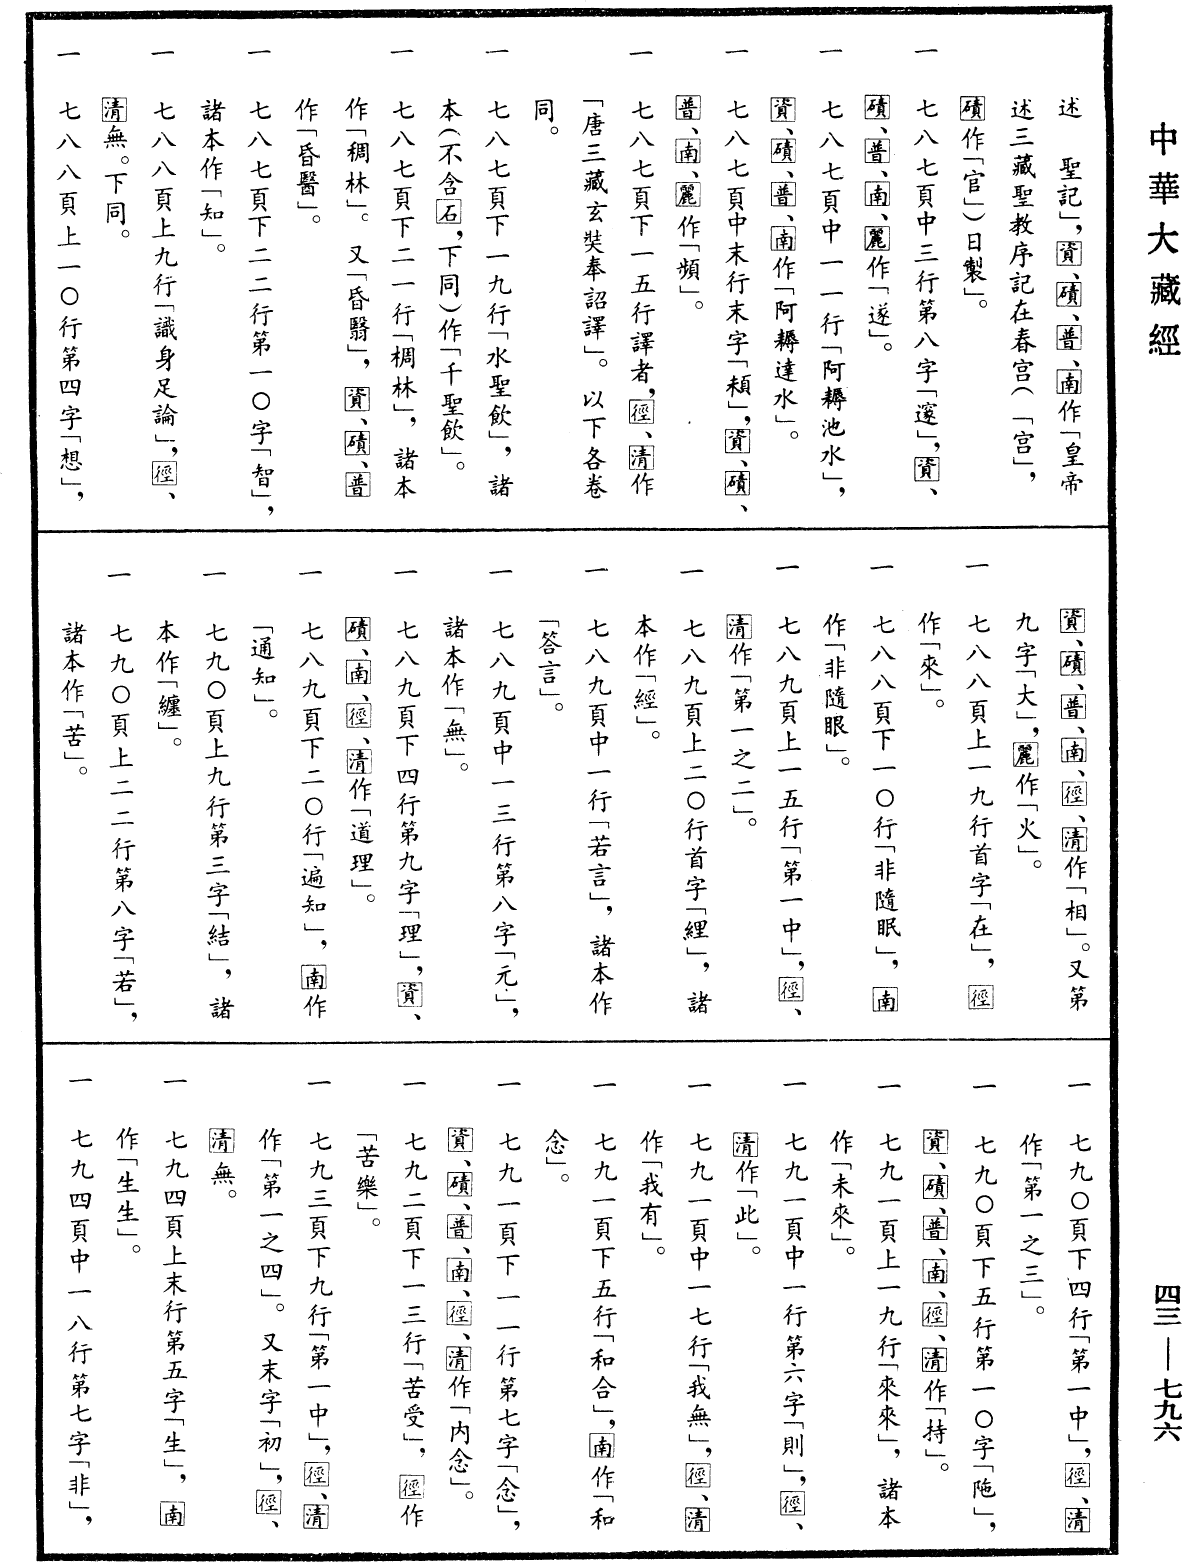 中華大藏經
述　聖記」，資、磧、普、南作「皇帝
述三藏聖教序記在春宫（「宫」，
磧作「官」）日製」。
一　七八七頁中三行第八字「邃」，資、
磧、普、南、麗作「遂」。
一　七八七頁中一一行「阿耨池水」，
資、磧、普、南作「阿耨達水」。
一　七八七頁中末行末字「頪」，資、磧、
普、南、麗作「頻」。
一　七八七頁下一五行譯者，徑、清作
「唐三藏玄奘奉詔譯」。以下各卷
同。
一　七八七頁下一九行「水聖飲」，諸
本（不含石，下同）作「千聖飲」。
一　七八七頁下二一行「椆林」，諸本
作「稠林」。又「昏翳」，資、磧、普
作「昏醫」。
一　七八七頁下二二行第一〇字「智」，
諸本作「知」。
一　七八八頁上九行「識身足論」，徑、
清無。下同。
一　七八八頁上一〇行第四字「想」，
資、磧、普、南、徑、清作「相」。又第
九字「大」，麗作「火」。
一　七八八頁上一九行首字「在」，徑
作「來」。
一　七八八頁下一〇行「非隨眠」，南
作「非隨眼」。
一　七八九頁上一五行「第一中」，徑、
清作「第一之二」。
一　七八九頁上二〇行首字「經」，諸
本作「經」。
一　七八九頁中一行「若言」，諸本作
「答言」。
一　七八九頁中一三行第八字「元」，
諸本作「無」。
一　七八九頁下四行第九字「理」，資、
磧、南、徑、清作「道理」。
一　七八九頁下二〇行「遍知」，南作
「通知」。
一　七九〇頁上九行第三字「結」，諸
本作「纏」。
一　七九〇頁上二二行第八字「若」，
諸本作「苦」。
一　七九〇頁下四行「第一中」，徑、清
作「第一之三」。
一　七九〇頁下五行第一〇字「陁」，
資、磧、普、南、徑、清作「持」。
一　七九一頁上一九行「來來」，諸本
作「未來」。
一　七九一頁中一行第六字「則」，徑、
清作「此」。
一　七九一頁中一七行「我無」，徑、清
作「我有」。
一　七九一頁下五行「和合」，南作「和
念」。
一　七九一頁下一一行第七字「念」，
資、磧、普、南、徑、清作「内念」。
一　七九二頁下一三行「苦受」，徑作
「苦樂」。
一　七九三頁下九行「第一中」，徑、清
作「第一之四」。又末字「初」，徑、
清無。
一　七九四頁上末行第五字「生」，南
作「生生」。
一　七九四頁中一八行第七字「非」，
四三—七九六